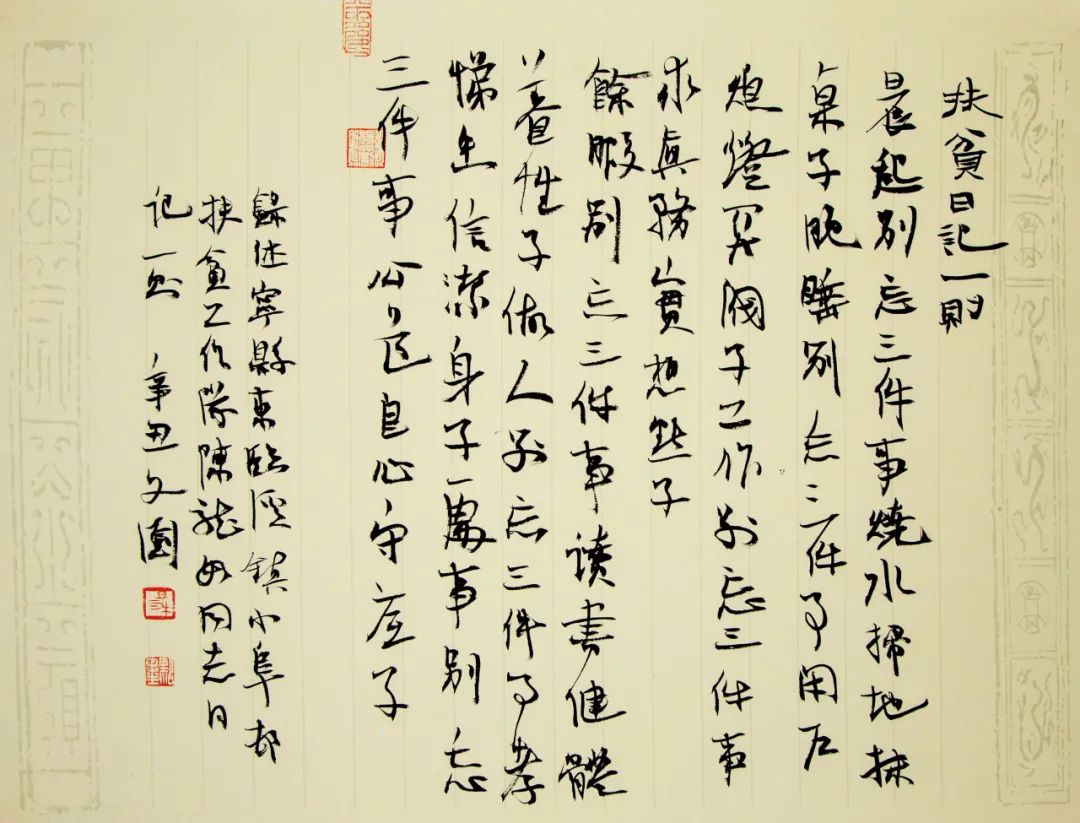 扶貧日記一則
晨起别忘三件事燒水掃地抹
桌子晚睡别忘三件事閉户
熄燈关閥子工作别忘三件事
求真務實想點子
餘暇别忘三件事读書健體
养性子做人别忘三件事孝
悌忠信潔身子處事别忘
三件事公心守底子
錄寧縣臨鎮小阜村
扶貧工作隊陳龍同志日
記一則 辛丑文園